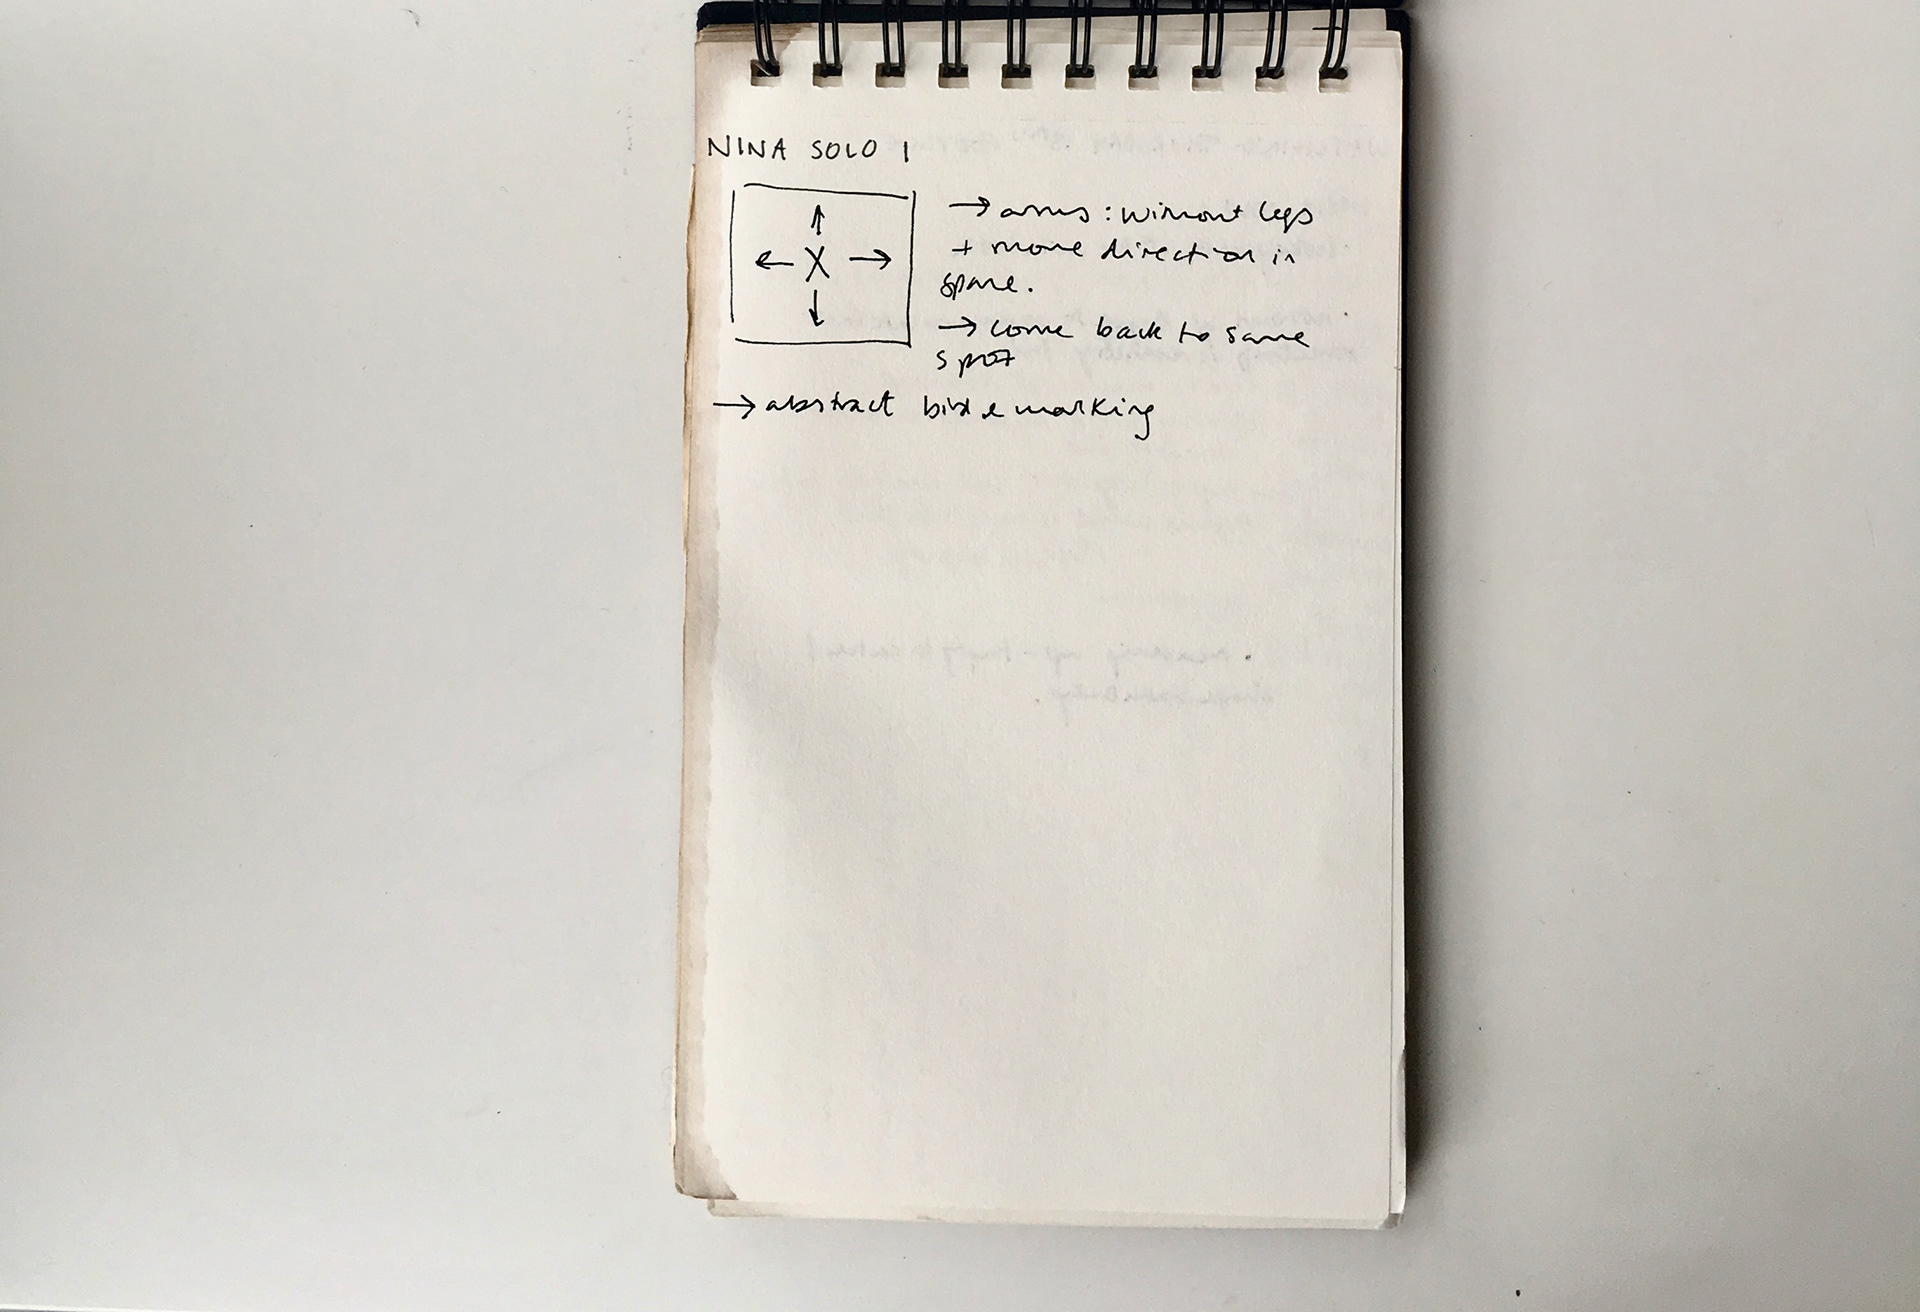 NINA SOLO 1
X
→ arms: without legs
+ move direction in
space.
→ come back to same
spot
→ abstract bird e marking